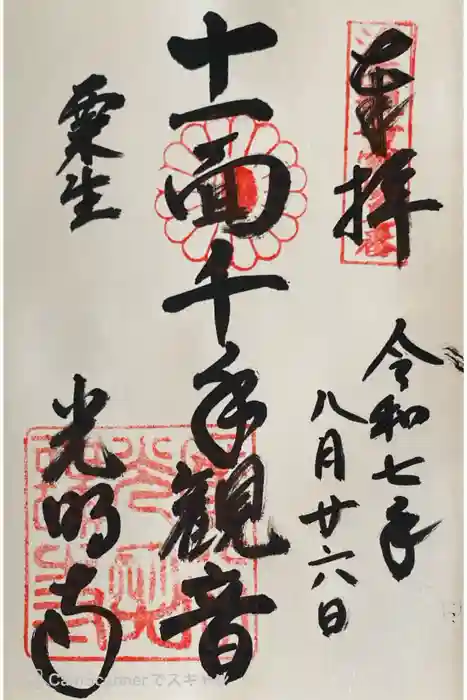 奉拝
令和七年
八月廿六日
十一面千手観音
粟生
光明寺
CamScannerでスキャン